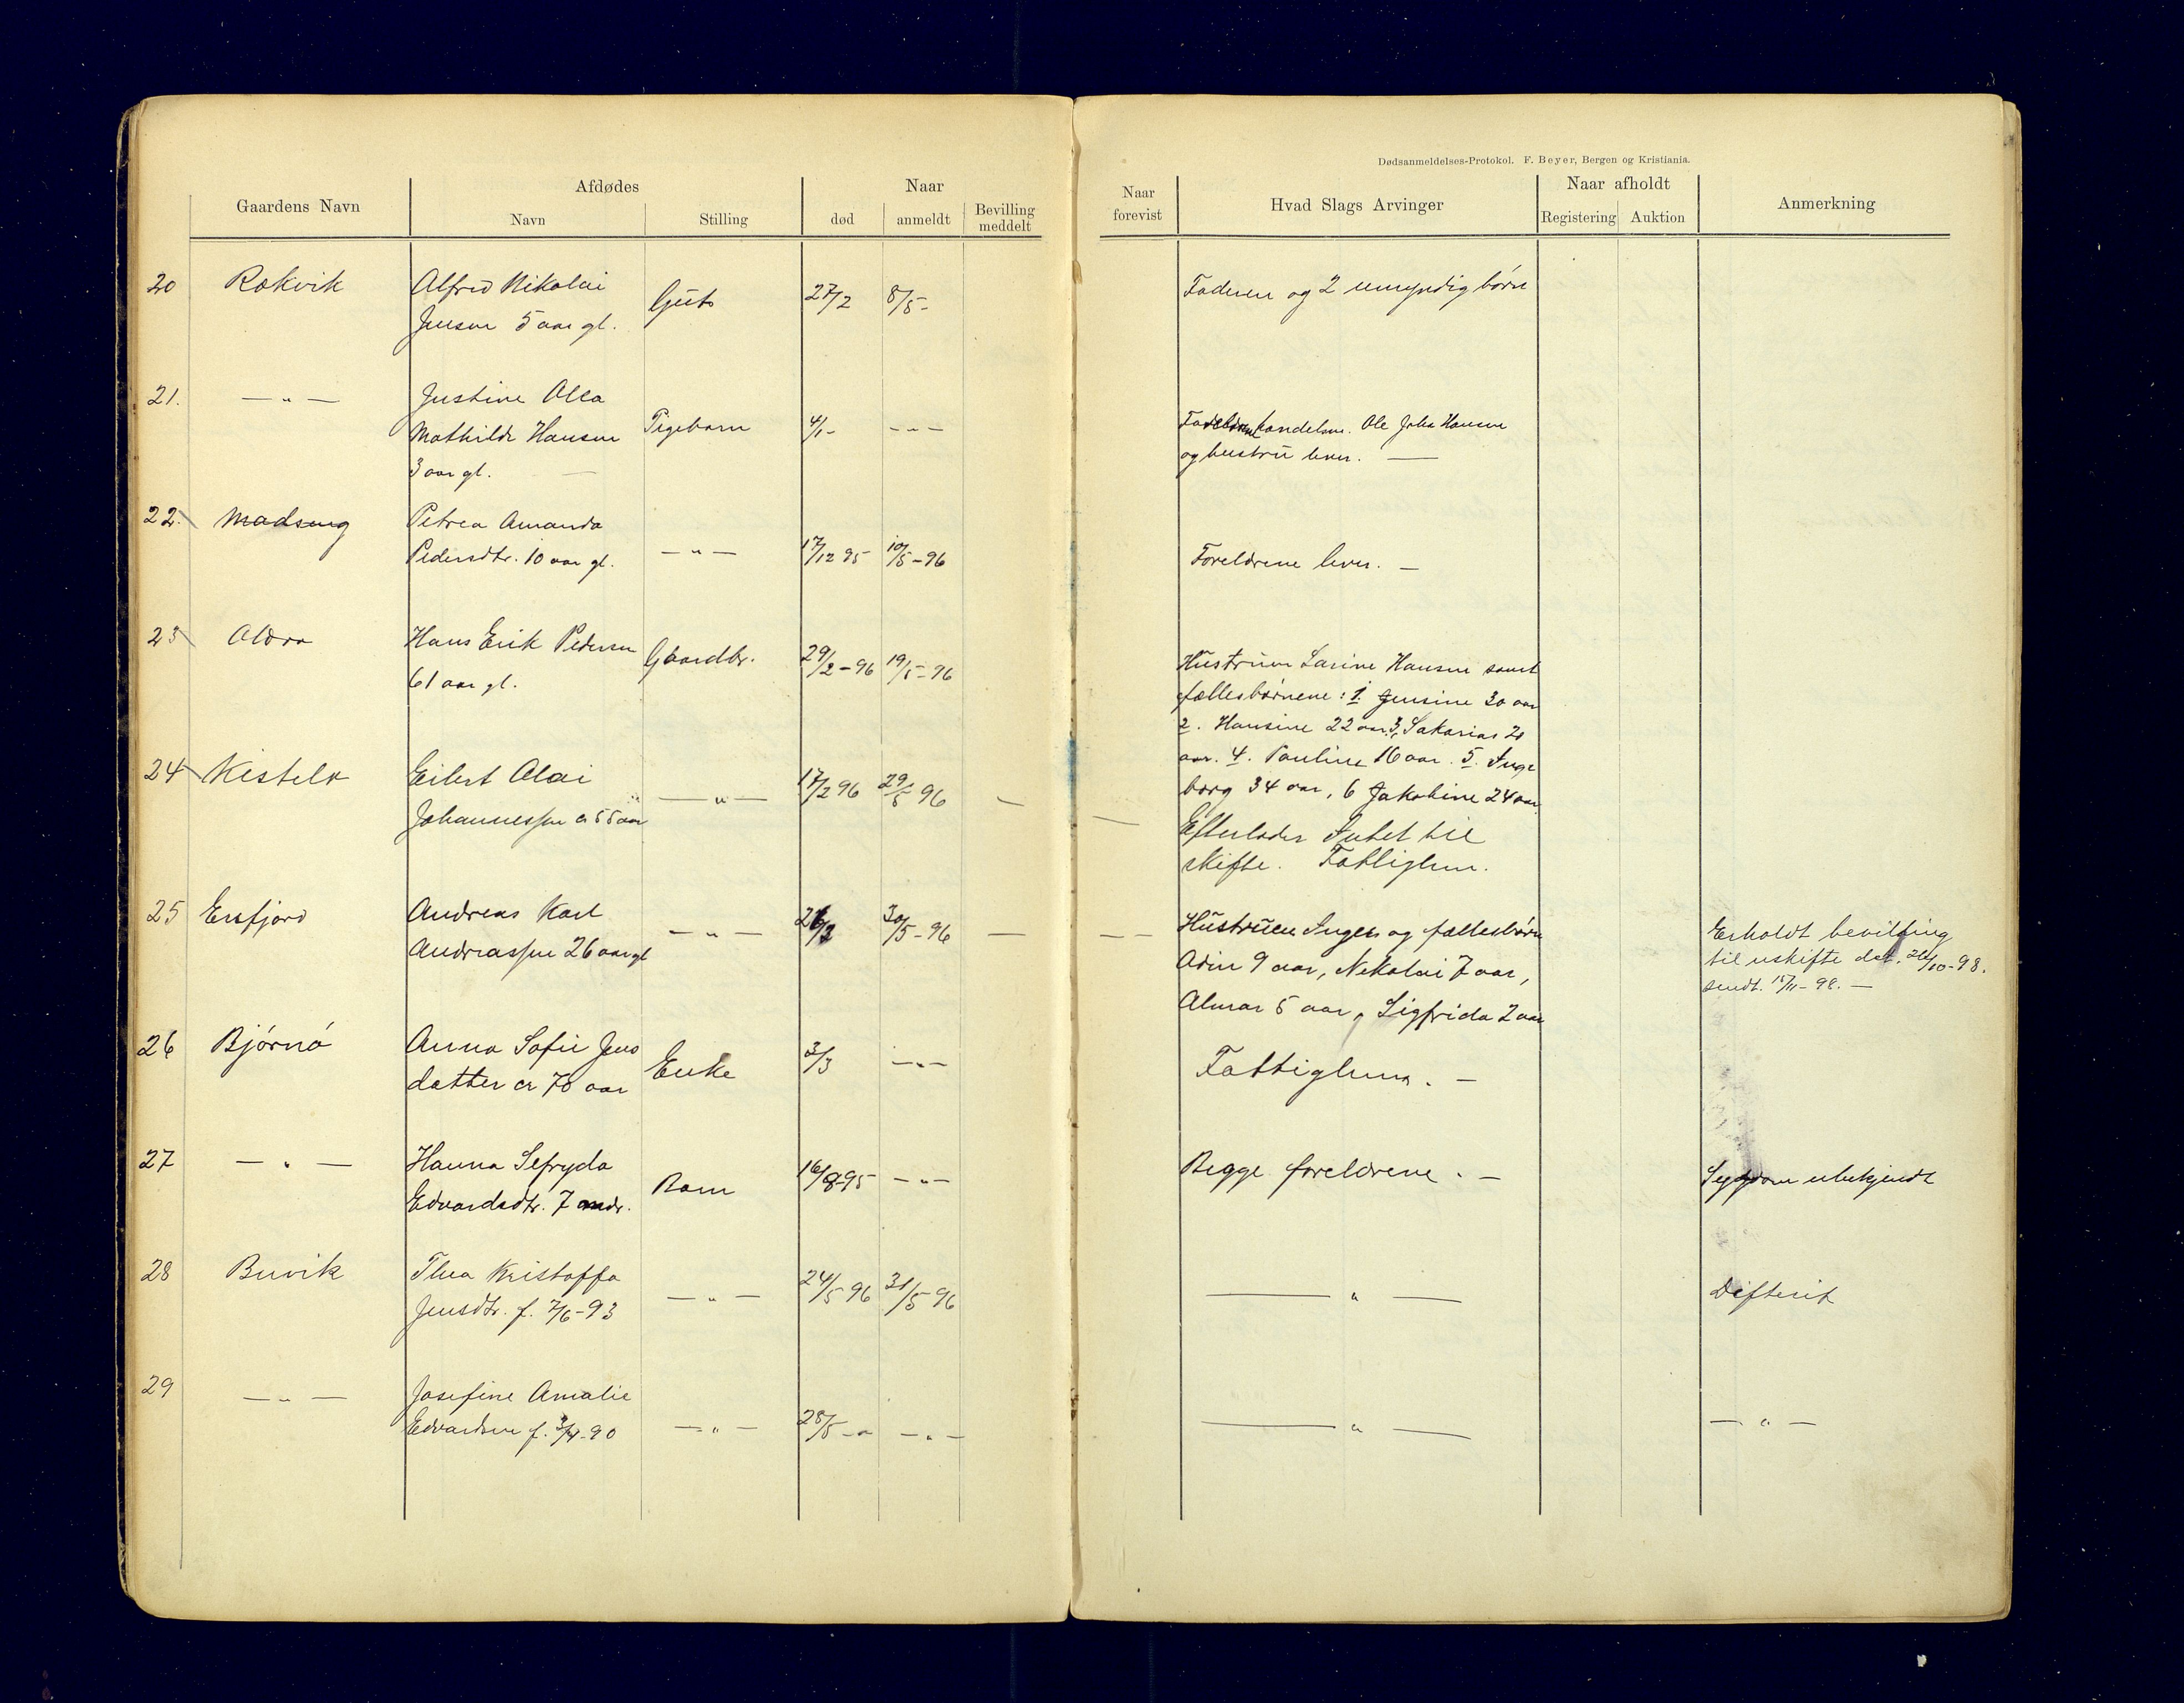 Dødsanmeldelses-Protokol. F. Beyer, Bergen og Kristiania.
Gaardens Navn
Afdødes
Navn
Stilling
Naar
død
anmeldt
Bevilling
meddelt
Naar
forevist
Hvad Slags Arvinger
Naar afholdt
Registering
Auktion
Anmerkning
20 Rekvik Alfred Nikolai
Jensen 5 aar gl. Gut 27/2 8/5- Faderen og 2 umyndig børn
21. — " — Justine Olea
Mathilde Hansen Pigebarn 4/1- - " - handelsm. Ole Johan Hansen
3 aar gl. og hustru lever. —
22. Petrea Amanda
Pedersdtr. 10 aar gl. — " — 17/12 95 10/5-96 Foreldrene lever. —
23 Oldra Hans Erik Pedersen Gaardbr. 29/2-96 19/5-96
61 aar gl.
Hustruen Sarine Hansen samt
fællesbørnene: 1. Jensine 30 aar
2. Hansine 22 aar 3, Sakarias 20
aar. 4. Pauline 16 aar. 5. Inge
borg 34 aar, 6 Jakobine 24 aar.
24 Kistelv Eilert Olai
Johannessen 55 aar — " — 17/2 96 29/5 96 — —
Efterlader Intet til
skifte. Fattiglem.
25 Ersfjord Andreas Karl
Andreassen 26 aar gl — " — 30/5-96 — — —
Hustruen Inger og fællesbørn
Odin 9 aar, Nikolai 7 aar,
Almar 5 aar, Sigfrida 2 aar
Erholdt bevilling
til uskifte dat. /10-98.
sendt. 15/11-98. —
26 Bjørnø Anna Sofie Jens
datter ca 70 aar Enke 3/3 — " — Fattiglem. —
27 — " — Hanna Sefryda
Edvardsdtr. 7 mdr. Barn 16/8-95 — " — Begge foreldrene. — Sygdom ubekjendt
28 Buvik Thea Kristoffa
Jensdtr. f. 7/6-93 — " — 24/5 96 31/5 96 — " — Difterit
29 — " — Josefine Amalie
Edvardsen f. 3/4-90 — " — 28/5 - " — " — — " — — " —